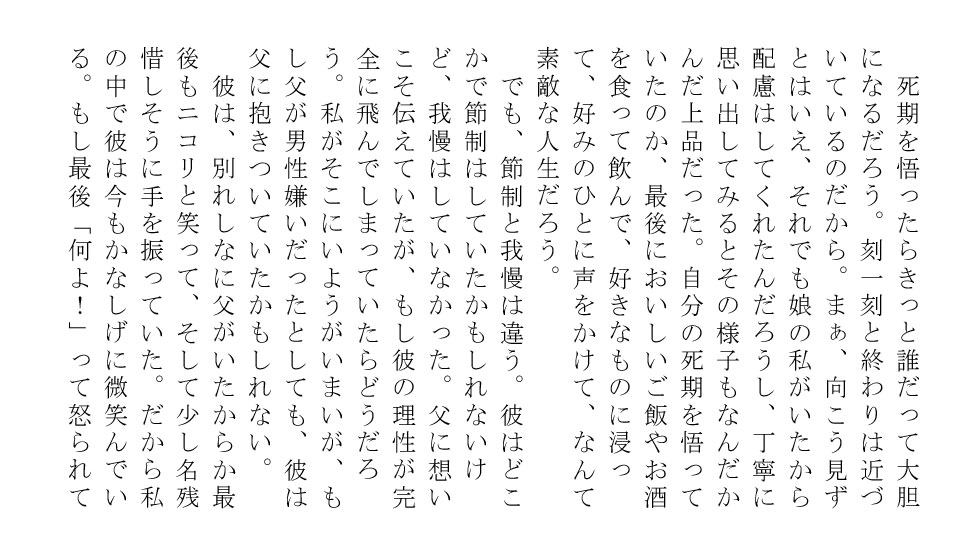 死期を悟ったらきっと誰だって大胆
になるだろう。刻一刻と終わりは近づ
いているのだから。まぁ、向こう見ず
とはいえ、それでも娘の私がいたから
配慮はしてくれたんだろうし、丁寧に
思い出してみるとその様子もなんだか
んだ上品だった。自分の死期を悟って
いたのか、最後においしいご飯やお酒
を食って飲んで、好きなものに浸っ
て、好みのひとに声をかけて、なんて
素敵な人生だろう。
　でも、節制と我慢は違う。彼はどこ
かで節制はしていたかもしれないけ
ど、我慢はしていなかった。父に想い
こそ伝えていたが、もし彼の理性が完
全に飛んでしまっていたらどうだろ
う。私がそこにいようがいまいが、も
し父が男性嫌いだったとしても、彼は
父に抱きついていたかもしれない。
　彼は、別れしなに父がいたからか最
後もニコリと笑って、そして少し名残
惜しそうに手を振っていた。だから私
の中で彼は今もかなしげに微笑んでい
る。もし最後「何よ！」って怒られて